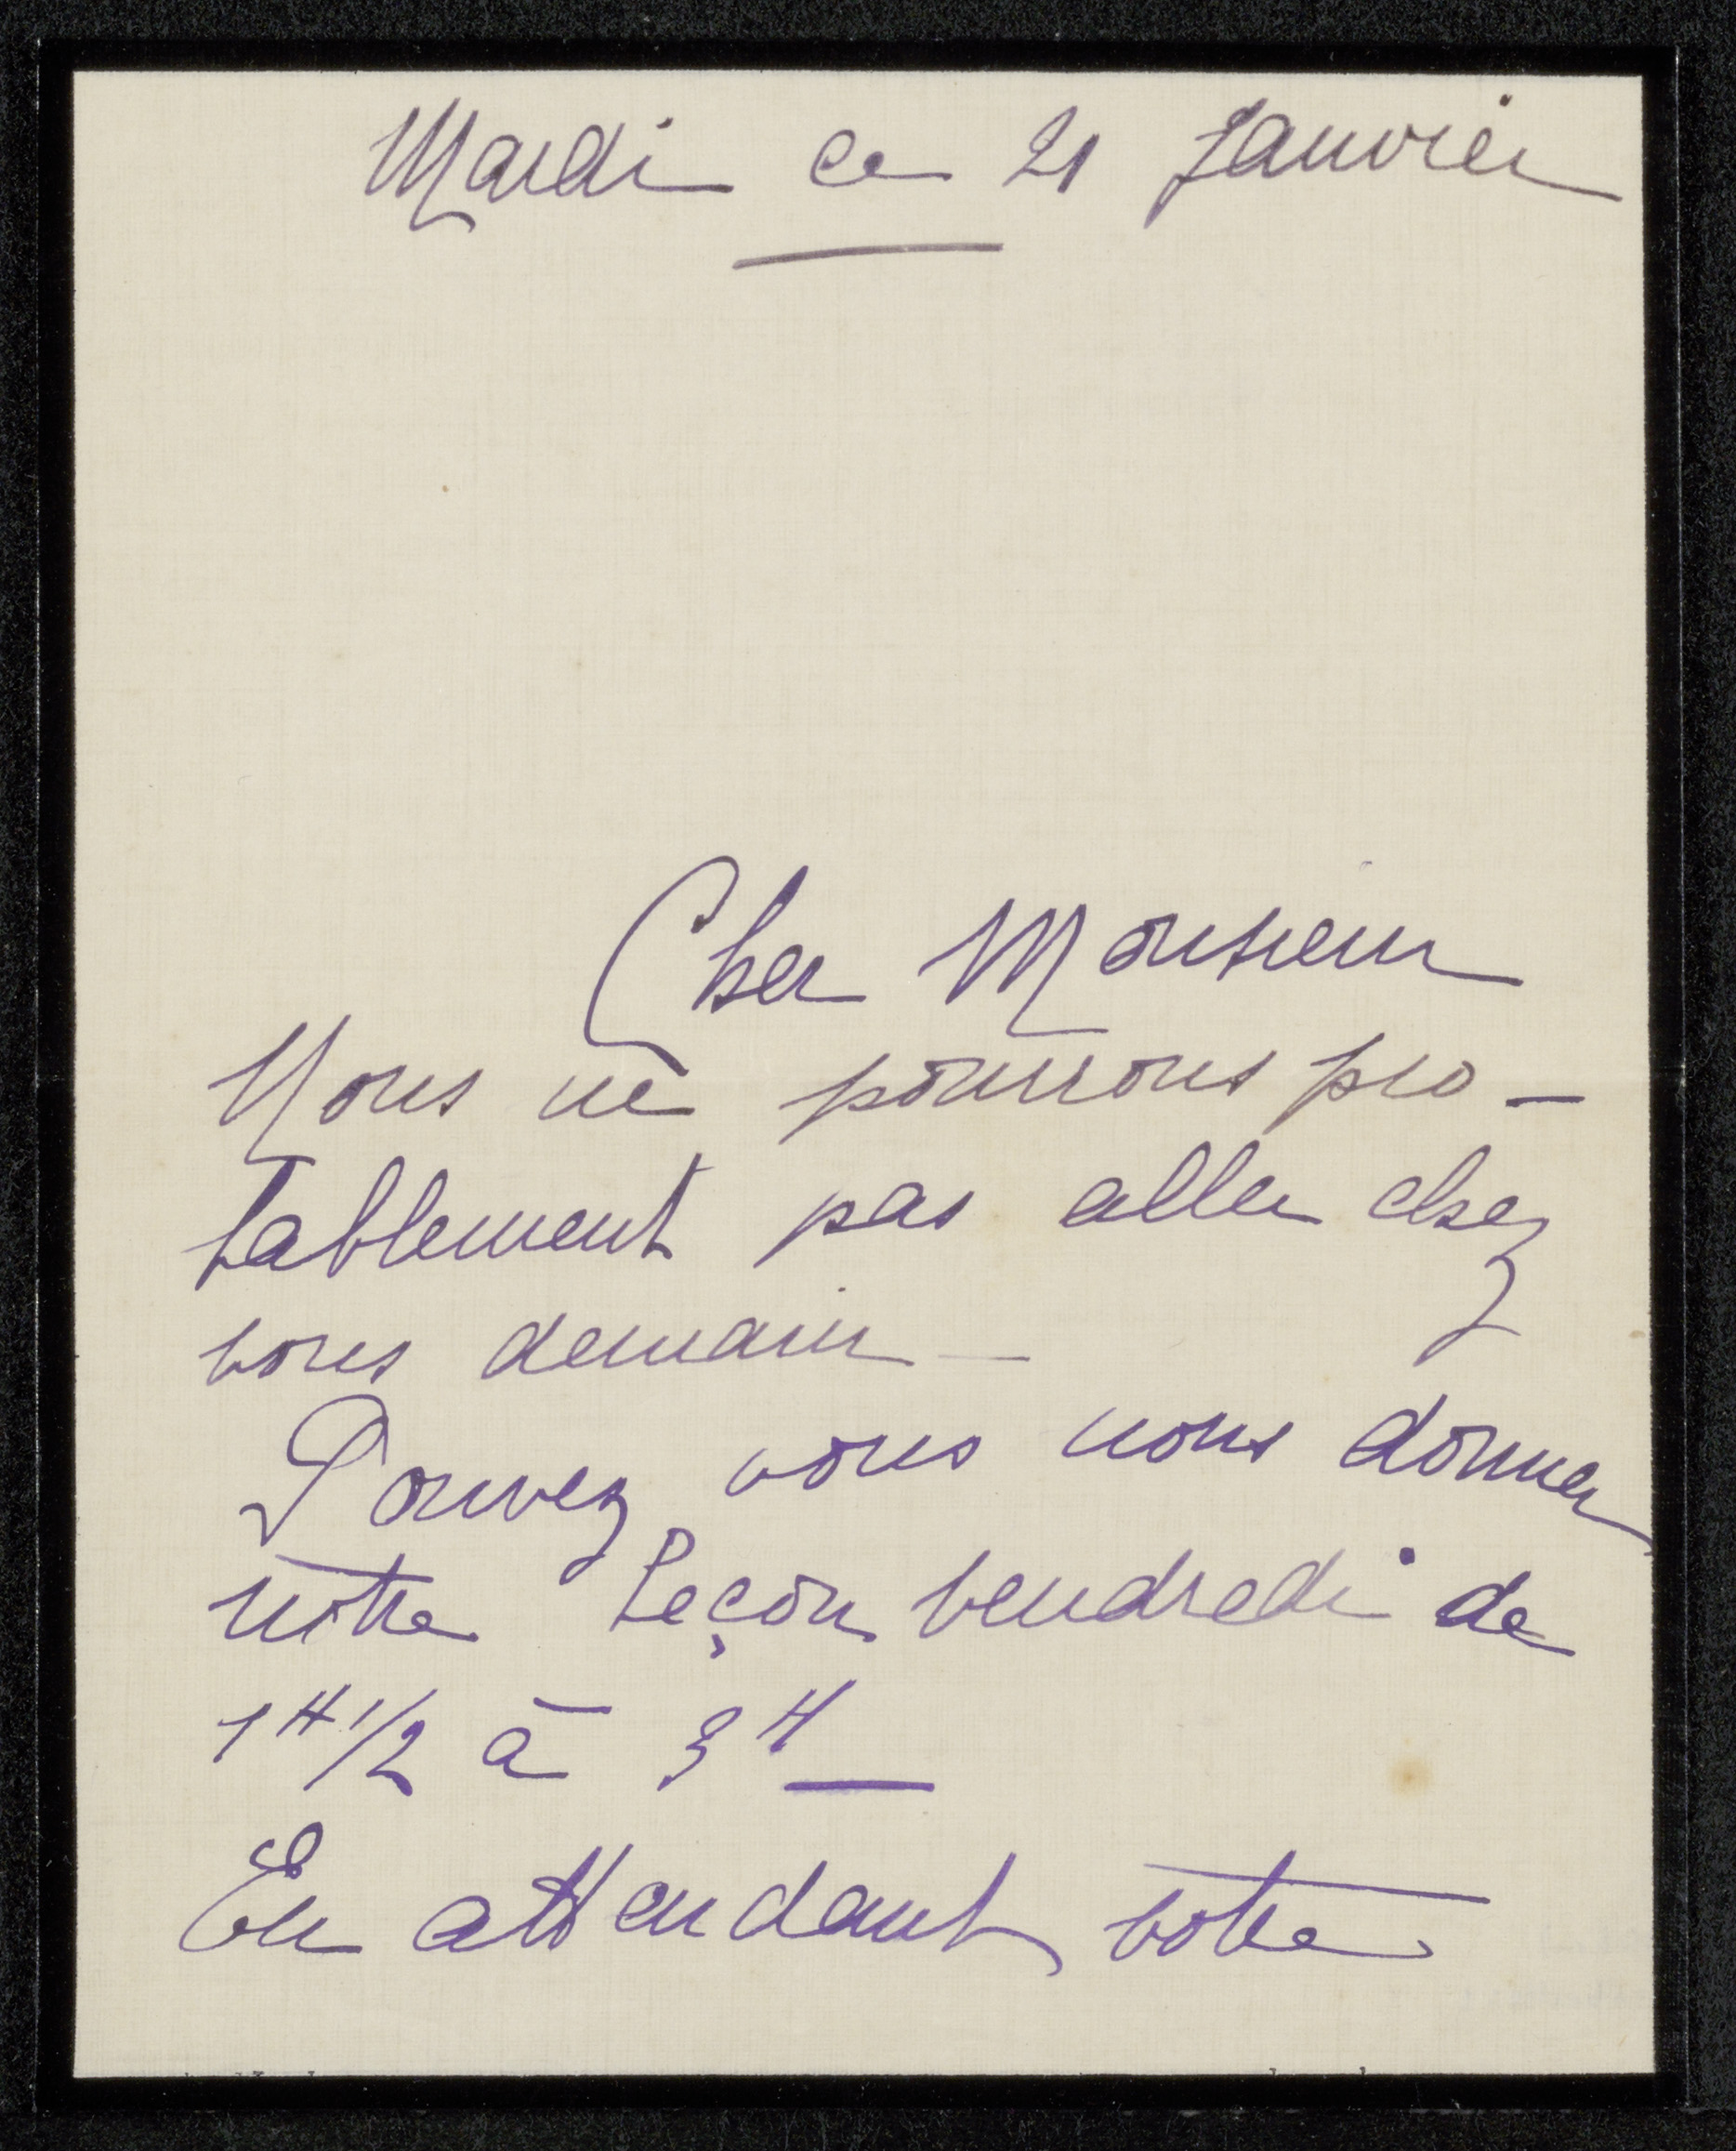 Mardi ce 21 Janvier
Cher Monsieur
Nous ne pourrons pro-
bablement pas aller chez
vous demain _
Pouvez vous nous donner
notre leçon vendredi de
1 H 1/2 à 3 H _
En attendant votre